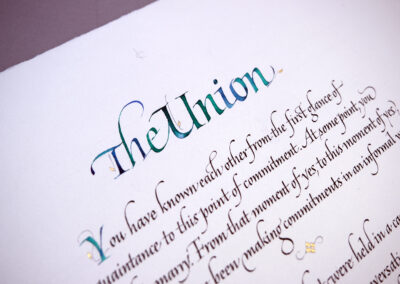 The Union
You have known each other from the first glance of
quaintance to this point of commitment. At some point you
mony. From that moment of yes, to this moment of yes,
been making commitments in an informal w
were held in a ca